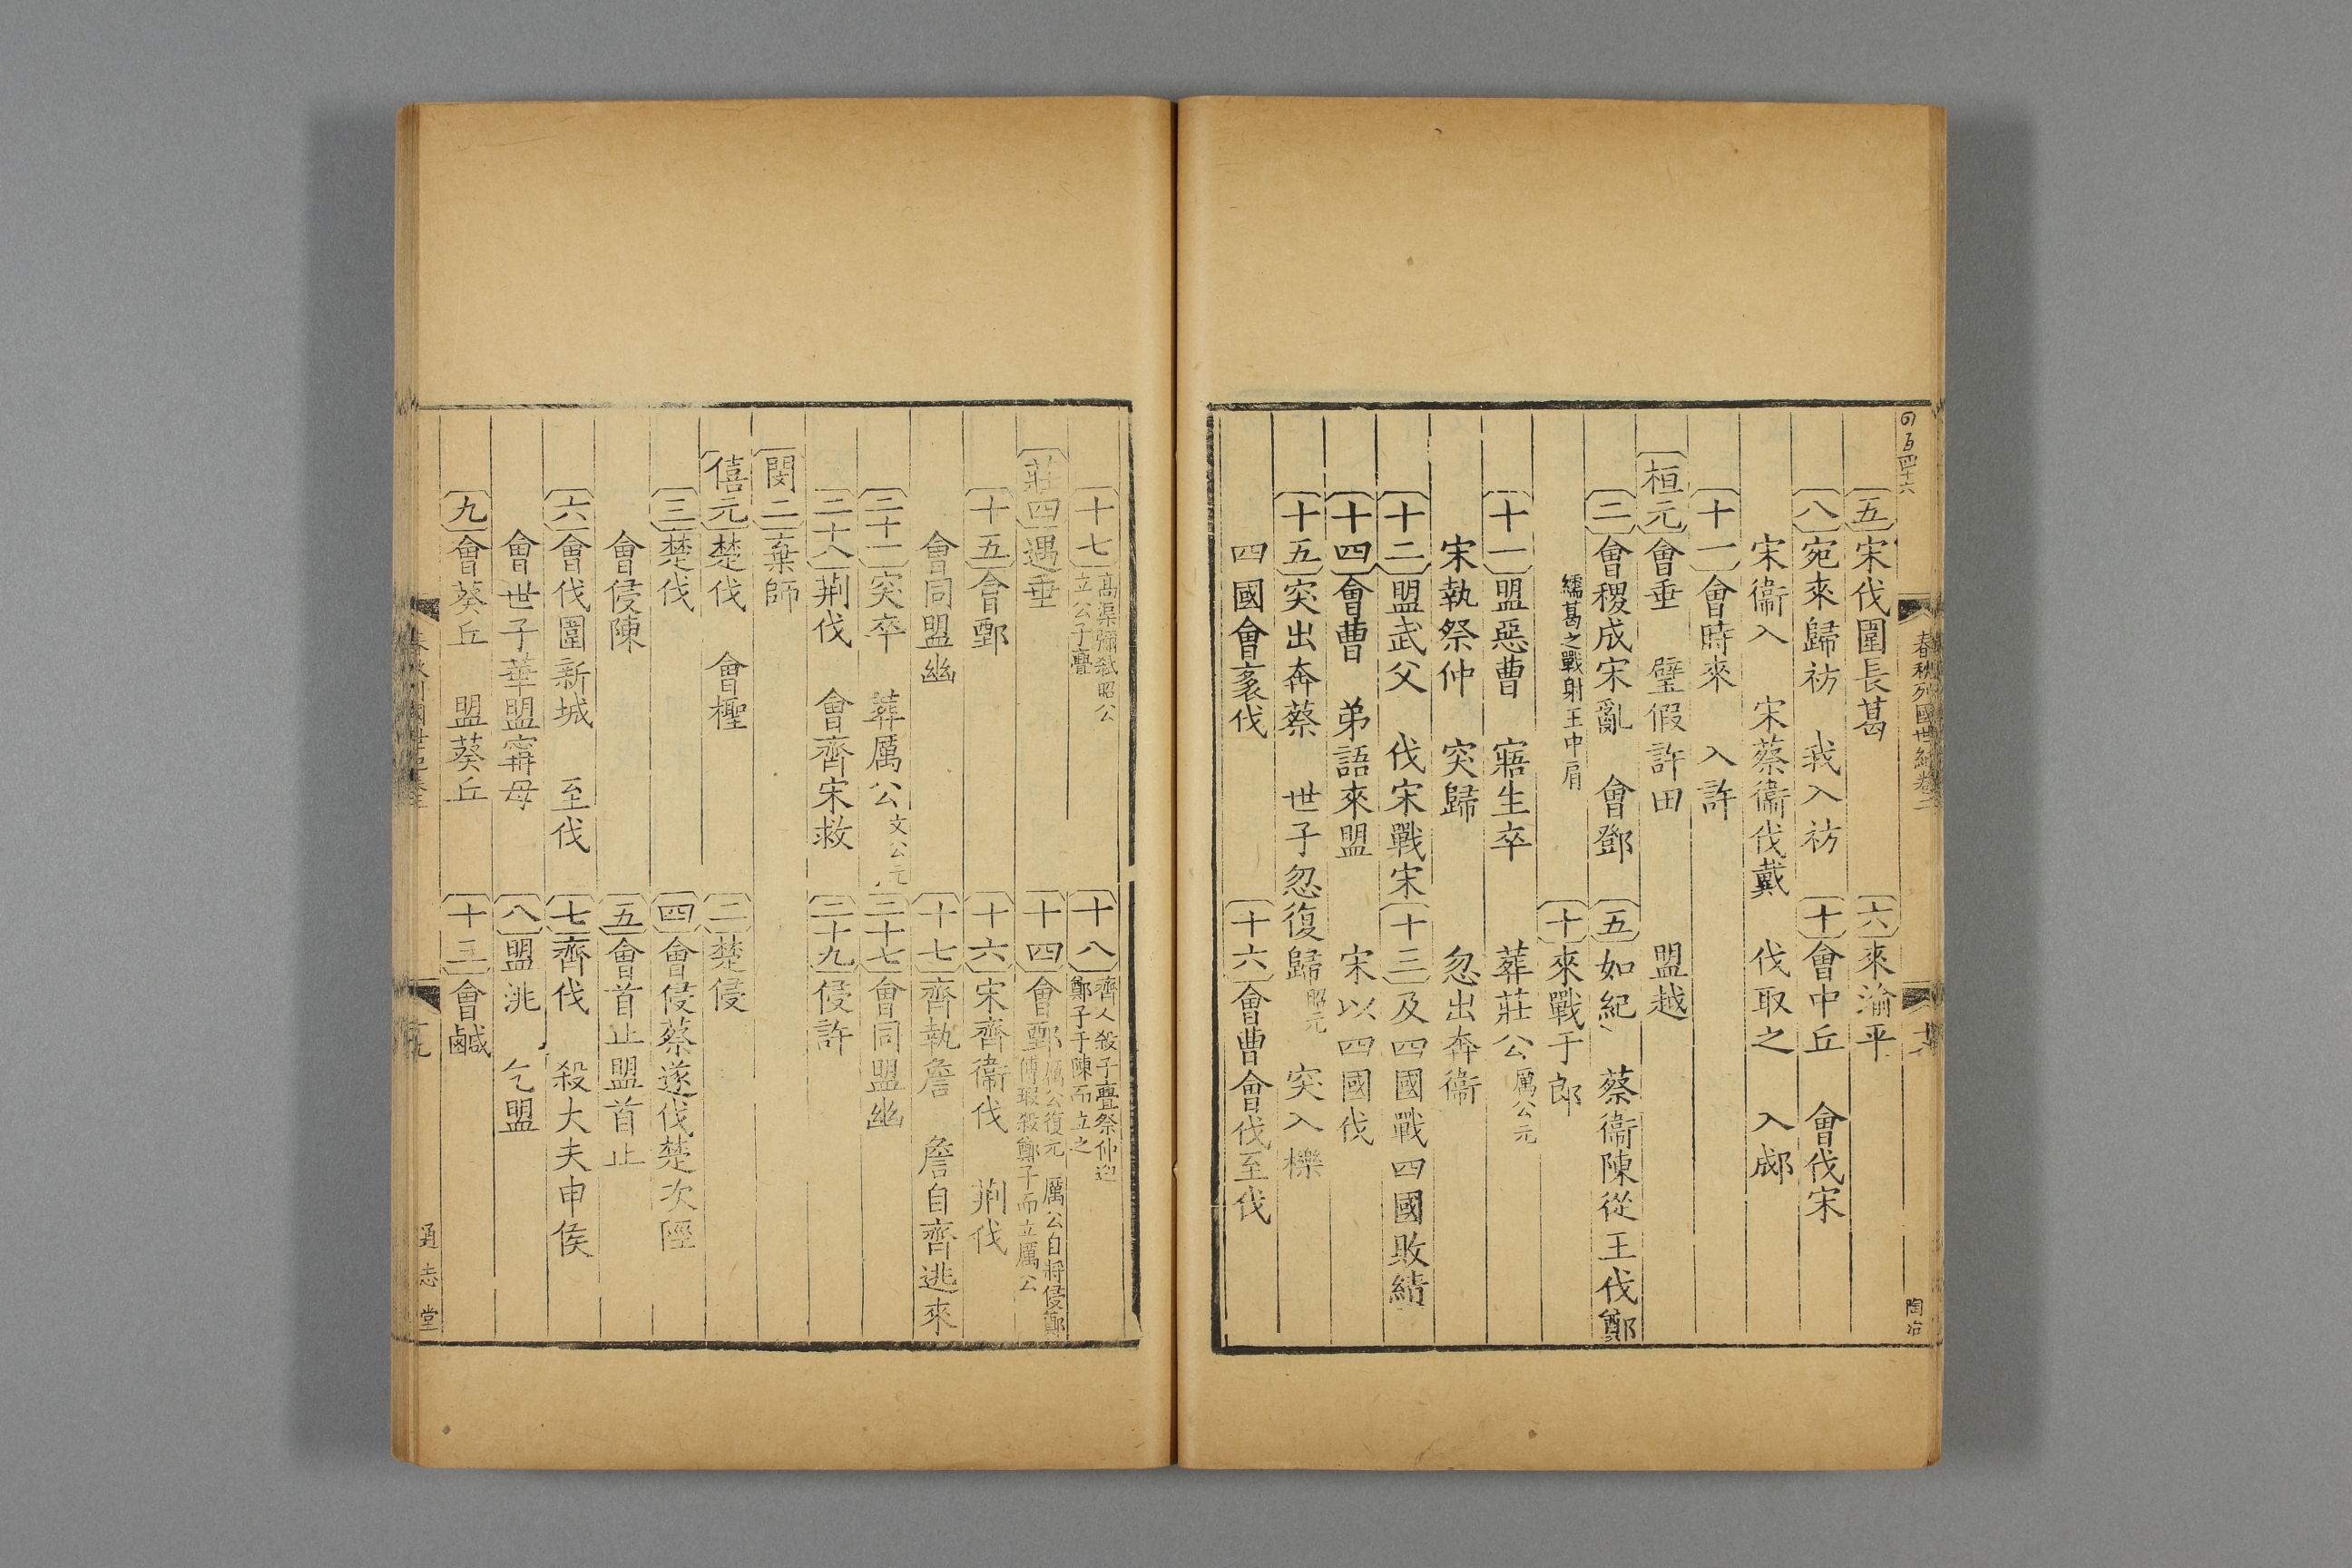 五 宋伐圍長葛 六 來渝平
八 宛來歸祊 我入祊 十 會中丘 會伐宋
宋衞入 宋蔡衞伐戴 伐取之 入郕
十一 會時來 入許
桓元 會垂 璧假許田 盟越
二 會稷成宋亂 會鄧 五 如紀 蔡衞陳從王伐鄭
繻葛之戰射王中肩 十 來戰于郎
十一 盟惡曹 寤生卒 葬莊公 厲公元
宋執祭仲 突歸 忽出奔衞
十二 盟武父 伐宋戰宋 十三 及四國戰四國敗績
十四 會曹 弟語來盟 宋以四國伐
十五 突出奔蔡 世子忽復歸 昭元 突入櫟
四國會袲伐 十六 會曹會伐至伐
春秋列國世紀卷二
陶冶
十七 高渠彌弑昭公立公子亹 十八 齊人殺子亹祭仲迎鄭子于陳而立之
莊四 遇垂 十四 會鄄 厲公復元 厲公自將侵鄭傅瑕殺鄭子而立厲公
十五 會鄄 十六 宋齊衞伐 荆伐
會同盟幽 十七 齊執詹 詹自齊逃來
二十一 突卒 葬厲公 文公元 二十七 會同盟幽
二十八 荆伐 會齊宋救 二十九 侵許
閔二 棄師
僖元 楚伐 會檉 二 楚侵
三 楚伐 四 會侵蔡遂伐楚次陘
會侵陳 五 會首止盟首止
六 會伐圍新城 至伐 七 齊伐 殺大夫申侯
會世子華盟甯母 八 盟洮 乞盟
九 會葵丘 盟葵丘 十三 會鹹
通志堂